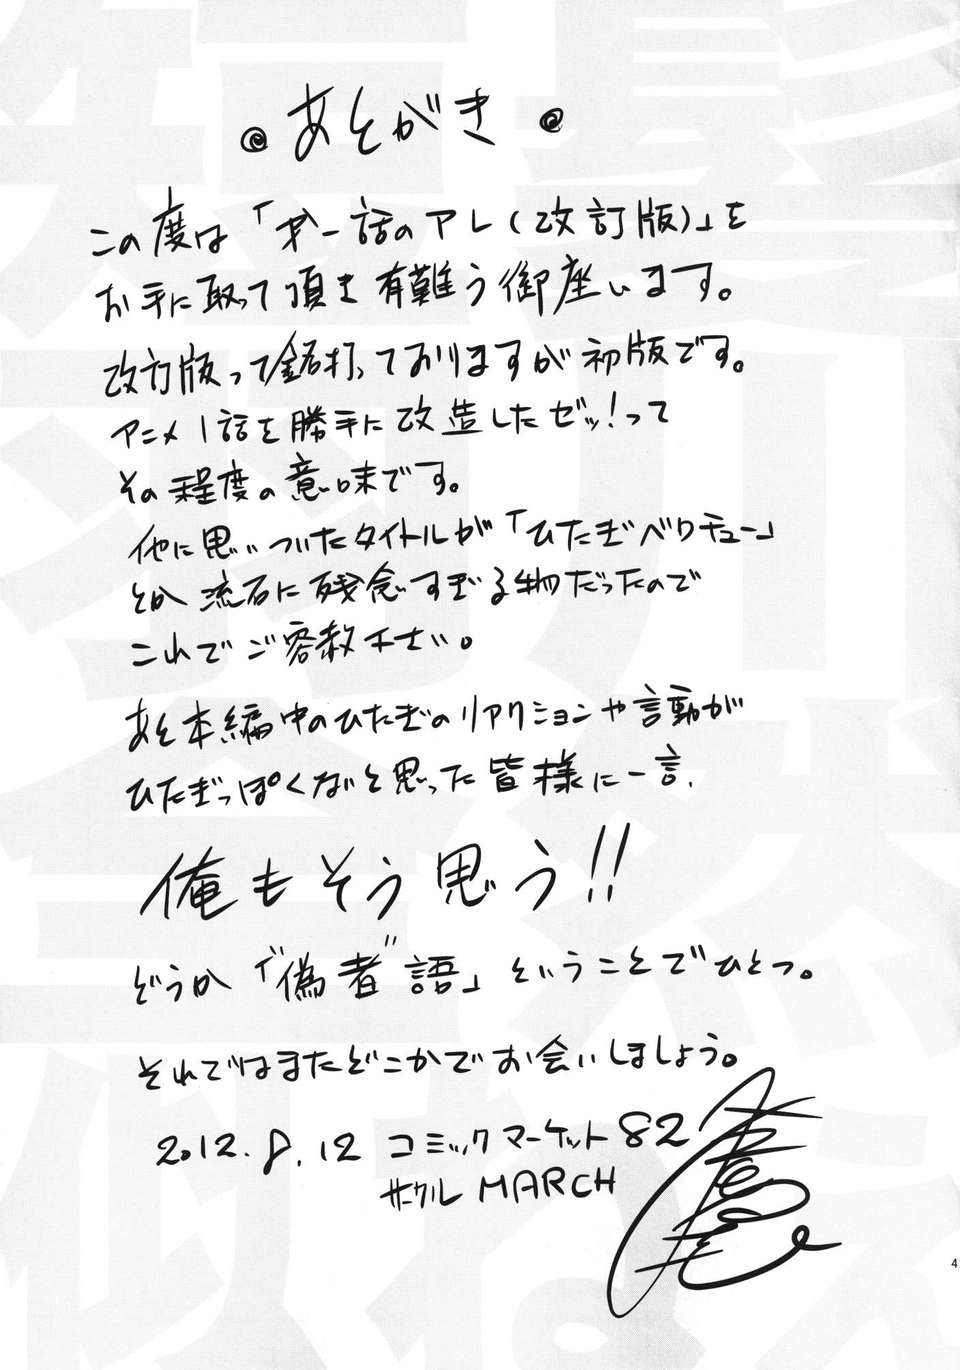 あとがき
この度は「第一話のアレ(改訂版)」を
お手に取って頂き有難う御座います。
改訂版って銘打っておりますが初版です。
アニメ1話を勝手に改造したゼッ!って
その程度の意味です。
他に思いついたタイトルが「ひたぎベクチュー」
とか流石に残念すぎる物だったので
これでご容赦下さい。
あと本編中のひたぎのリアクションや言動が
ひたぎっぽくないと思った皆様に一言.
俺もそう思う!!
どうか「"偽者"語」ということでひとつ。
それではまたどこかでお会いしましょう。
2012.8.12 コミックマーケット82
サークル MARCH
短髪
羽川
も
似
ねえ
4